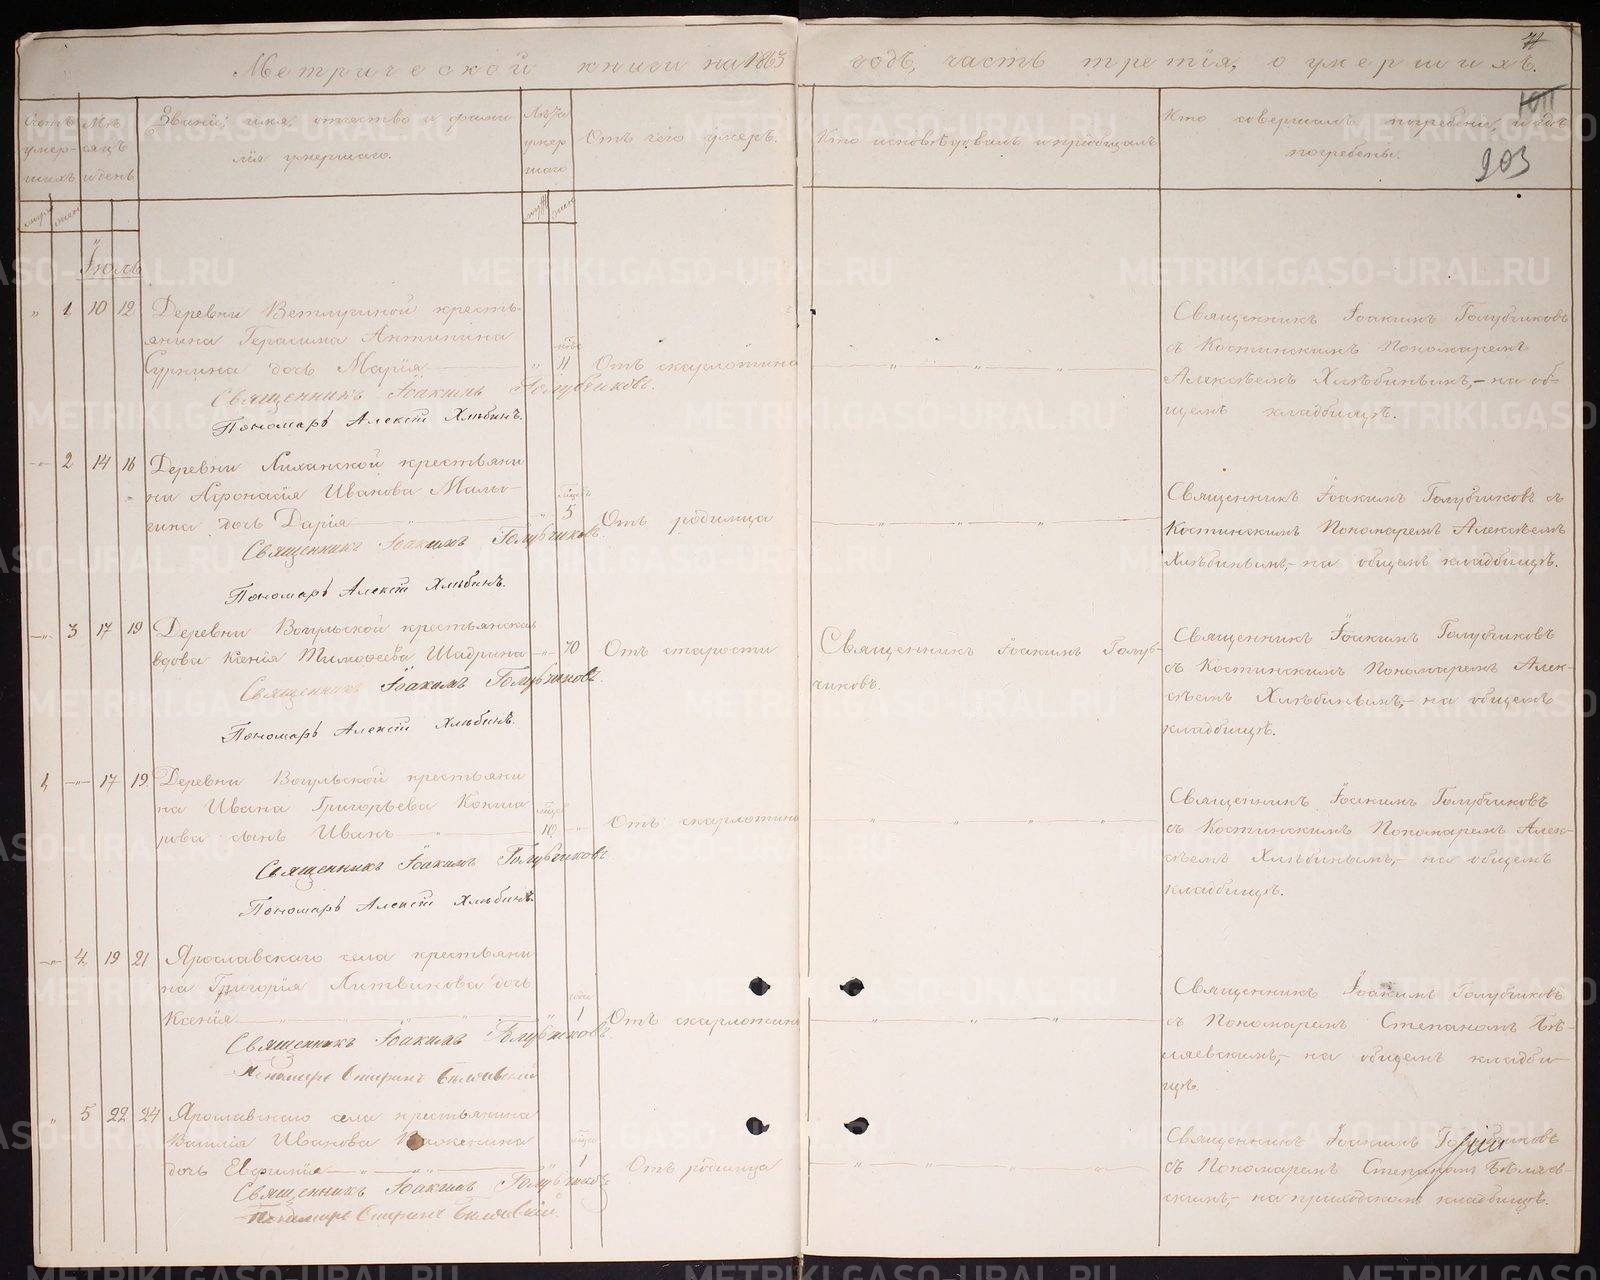 Метрической книги на 1863 годъ, часть третія, о умершихъ.
71
1011
903
Счетъ умершихъ
Мѣсяцъ и день
Званіе, имя, отчество и фамилія умершаго.
Лѣта умершаго
Отъ чего умеръ.
Кто исповѣдывалъ и пріобщалъ
Кто совершалъ погребеніе, и гдѣ погребены.
Іюль
1 10 12 Деревни Ветлугиной кресть-
янина Герасима Антипина
Суркина дочь Марія 11 Отъ скарлотина
Священникъ Іоакимъ Голубчиковъ.
Пономарь Алексѣй Хлѣбинъ.
Священникъ Іоакимъ Голубчиковъ
съ Костинскимъ Пономаремъ
Алексѣемъ Хлѣбинымъ,- на об-
щемъ кладбищѣ.
2 14 16 Деревни Лиханской крестьяни
на Афонасія Иванова Малы-
гина дочь Дарія 5 Отъ родимца
Священникъ Іоакимъ Голубчиковъ.
Пономарь Алексѣй Хлѣбинъ.
Священникъ Іоакимъ Голубчиковъ съ
Костинскимъ Пономаремъ Алексѣемъ
Хлѣбинымъ,- на общемъ кладбищѣ.
3 17 19 Деревни Вогульской крестьянская
вдова Ксенія Тимофеева Шадрина 70 Отъ старости
Священникъ Іоакимъ Голубчиковъ.
Пономарь Алексѣй Хлѣбинъ.
Священникъ Іоакимъ Голуб-
чиковъ.
Священникъ Іоакимъ Голубчиковъ
съ Костинскимъ Пономаремъ Алек-
сѣемъ Хлѣбинымъ,- на общемъ
кладбищѣ.
1 17 19 Деревни Вогульской крестьяни
на Ивана Григорьева Кокша
рова сынъ Иванъ 10 Отъ скарлотины
Священникъ Іоакимъ Голубчиковъ
Пономарь Алексѣй Хлѣбинъ.
Священникъ Іоакимъ Голубчиковъ
съ Костинскимъ Пономаремъ Алек-
сѣемъ Хлѣбинымъ,- на общемъ
кладбищѣ.
4 19 21 Ярославскаго села крестьяни
на Григорія Литвинова дочь
Ксенія 1 Отъ скарлотины
Священникъ Іоакимъ Голубчиковъ
Пономарь Стефанъ Бѣляевскій
Священникъ Іоакимъ Голубчиковъ
съ Пономаремъ Степаномъ Бѣ-
ляевскимъ,- на общемъ кладби-
щѣ.
5 22 24 Ярославскаго села крестьянина
Василія Иванова
дочь Евфимія 1 Отъ родимца
Священникъ Іоакимъ Голубчиковъ
Пономарь Стефанъ Бѣляевскій.
Священникъ Іоакимъ Голубчиковъ
съ Пономаремъ Степаномъ Бѣляев-
скимъ,- на приходскомъ кладбищѣ.
METRIKI.GASO-URAL.RU